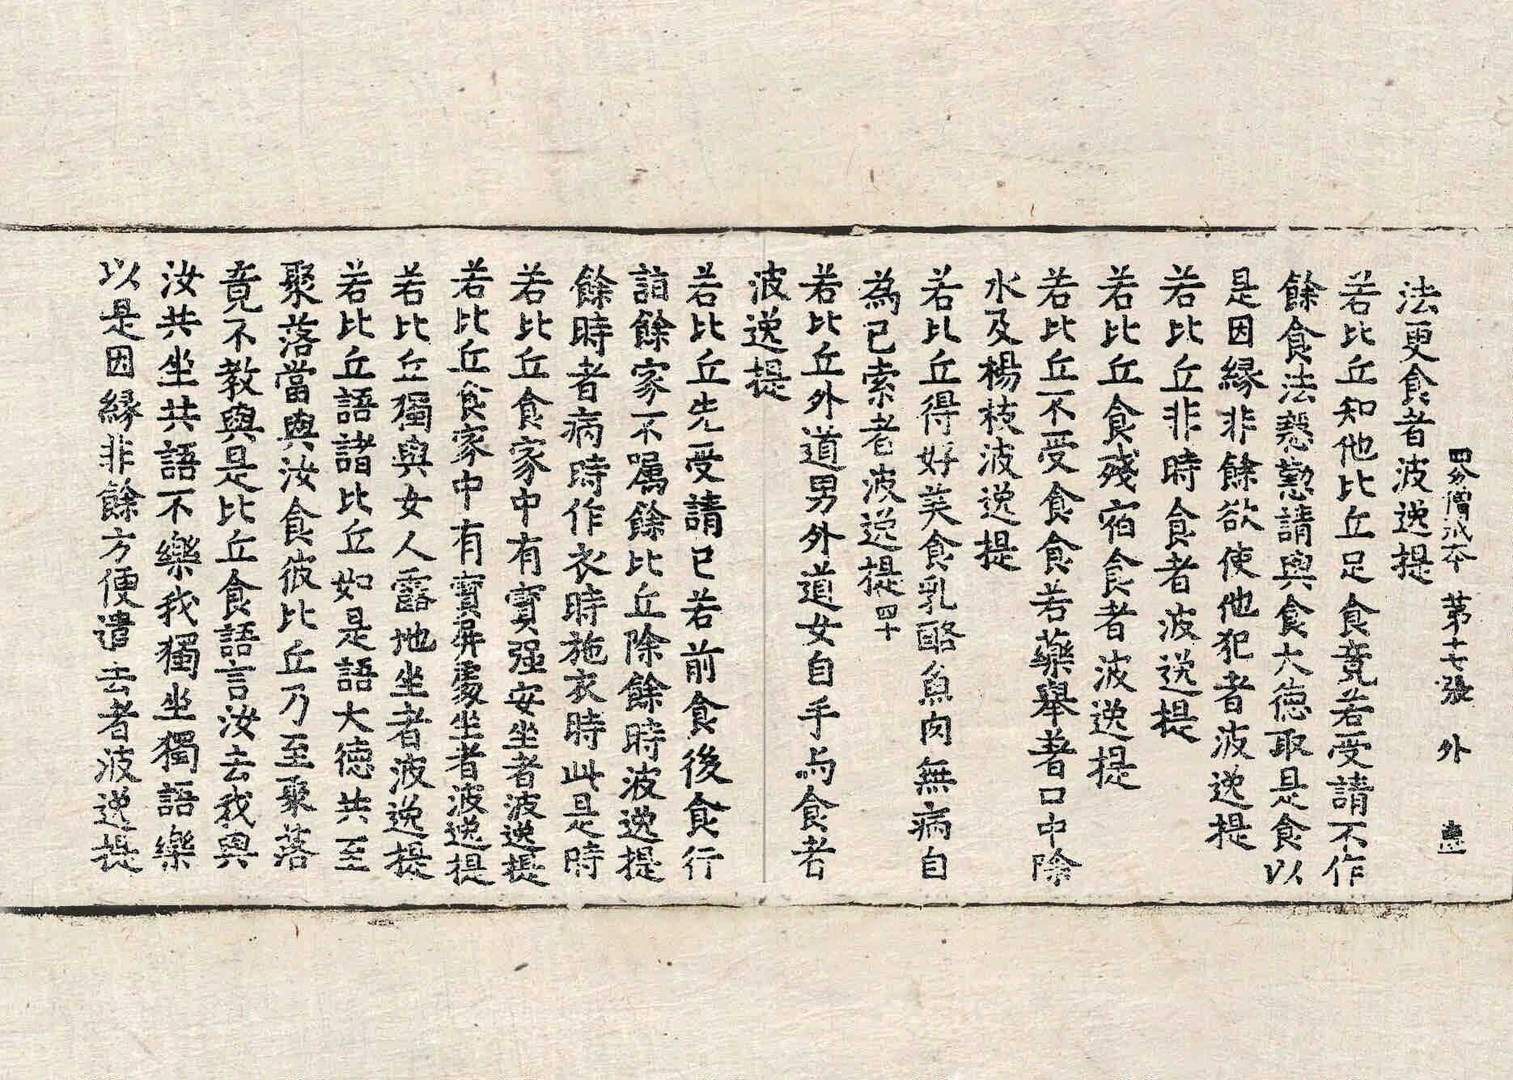 四分僧戒本 第十七張 外 惠
法更食者波逸提
若比丘知他比丘足食竟若受請不作
餘食法慇懃請與食大德取是食以
是因緣非餘欲使他犯者波逸提
若比丘非時食者波逸提
若比丘食殘宿食者波逸提
若比丘不受食食若藥舉著口中除
水及楊枝波逸提
若比丘得好美食乳酪魚肉無病自
為己索者波逸提四十
若比丘外道男外道女自手与食者
波逸提
若比丘先受請已若前食後食行
詣餘家不囑餘比丘除餘時波逸提
餘時者病時作衣時施衣時此是時
若比丘食家中有寶强安坐者波逸提
若比丘食家中有寶屏處坐者波逸提
若比丘獨與女人露地坐者波逸提
若比丘語諸比丘如是語大德共至
聚落當與汝食彼比丘乃至聚落
竟不教與是比丘食語言汝去我與
汝共坐共語不樂我獨坐獨語樂
以是因緣非餘方便遣去者波逸提